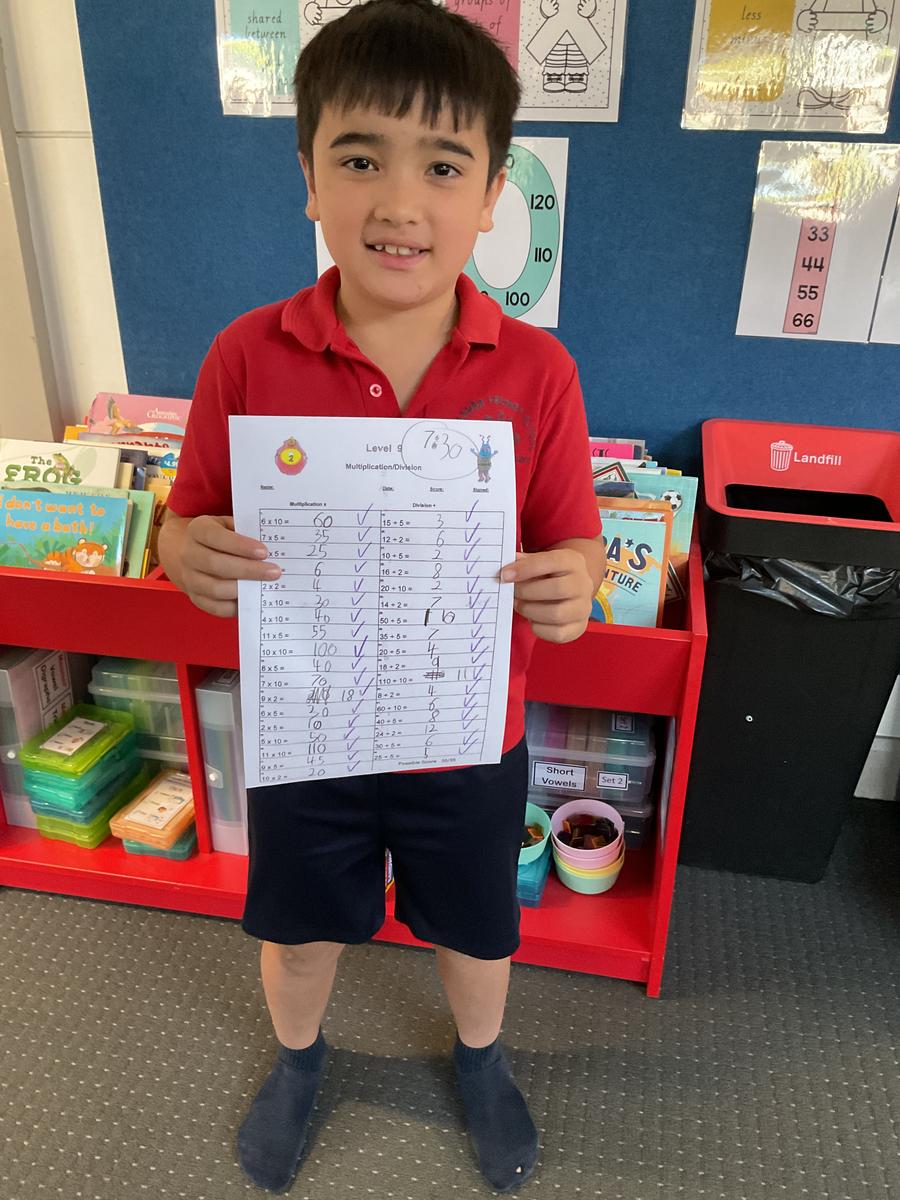 shared
between
groups of
of
less
120
110
100
33
44
55
66
Landfill
The
FROG
I don't want to
have a bath!
Level 9
7:30
2
Multiplication/Division
Name:
Date:
Score:
Signed:
Multiplication x
Division ÷
6 x 10 = 60
15 ÷ 5 = 3
7 x 5 = 35
12 ÷ 2 = 6
x 5 = 25
10 ÷ 5 = 2
6
16 ÷ 2 = 8
2 x 2 = 4
20 ÷ 10 = 2
3 x 10 = 30
14 ÷ 2 = 7
4 x 10 = 40
50 ÷ 5 = 10
11 x 5 = 55
35 ÷ 5 = 7
10 x 10 = 100
20 ÷ 5 = 4
8 x 5 = 40
18 ÷ 2 = 9
7 x 10 = 70
110 ÷ 10 = 11
9 x 2 = 18
8 ÷ 2 = 4
6 x 5 =
60 ÷ 10 = 6
2 x 5 = 10
40 ÷ 5 = 8
5 x 10 = 50
24 ÷ 2 = 12
11 x 10 = 110
30 ÷ 5 = 6
9 x 5 = 45
25 ÷ 5 = 5
10 x 2 = 20
Possible Score
Short
Vowels
Set 2